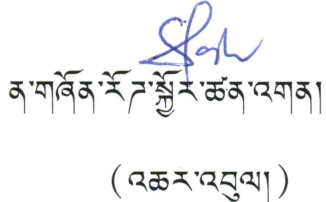 ན་གཞོན་རོ཯་སྐྱོར་ཚན་འགན།
(འཆར་འབུལ།)